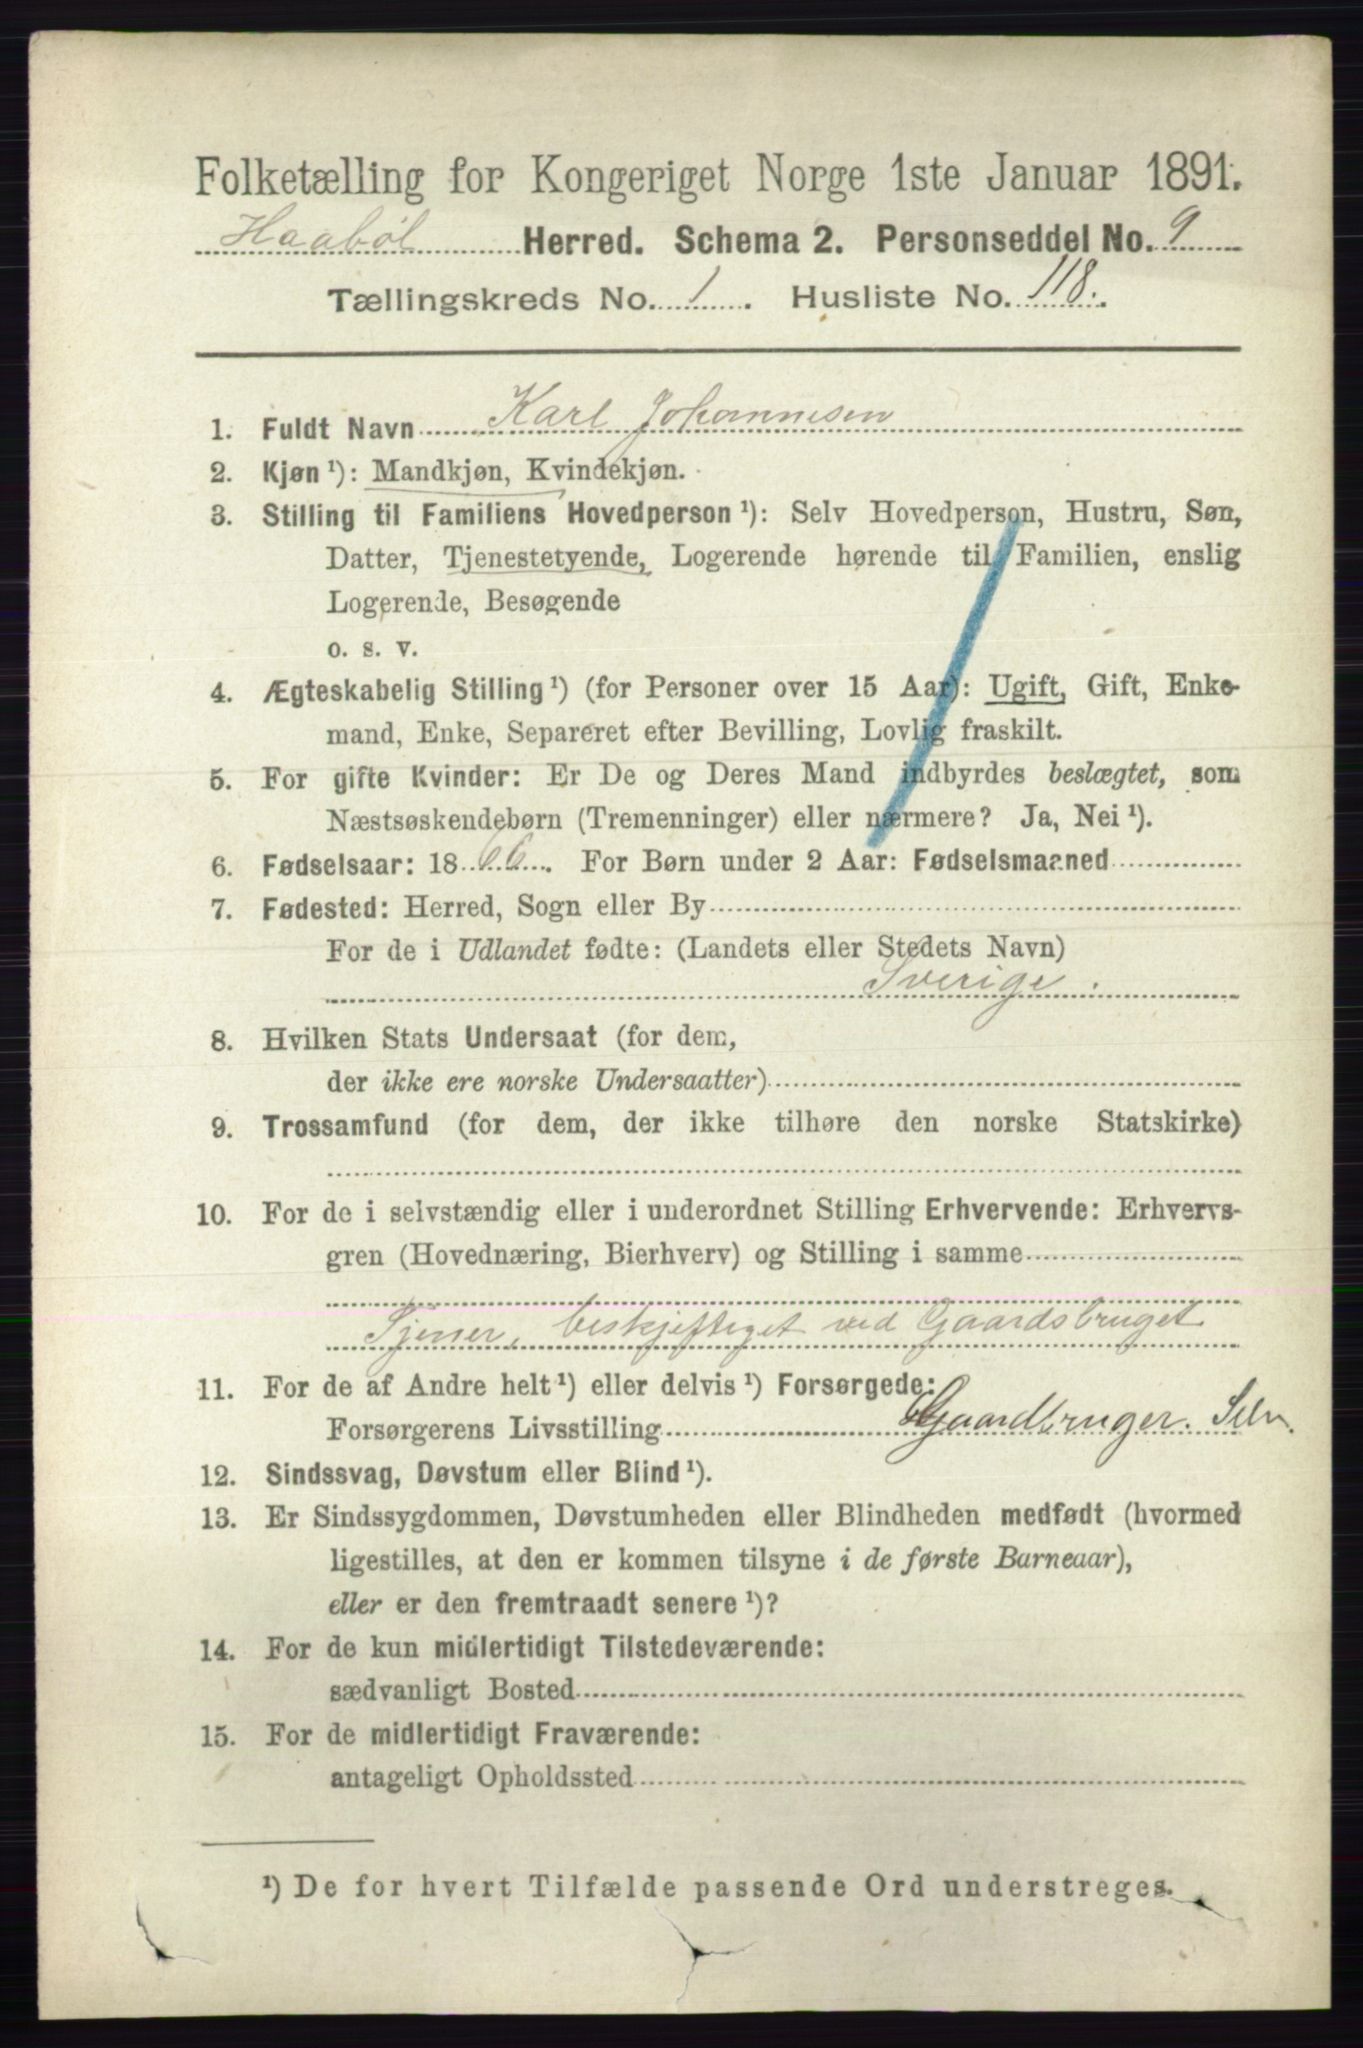 Folketælling for Kongeriget Norge 1ste Januar 1891.
Haabøl Herred. Schema 2. Personseddel No. 9
Tællingskreds No. 1. Husliste No. 118.
1. Fuldt Navn Karl Johannesen
2. Kjøn ¹): Mandkjøn, Kvindekjøn.
3. Stilling til Familiens Hovedperson ¹): Selv Hovedperson, Hustru, Søn,
Datter, Tjenestetyende, Logerende hørende til Familien, enslig
Logerende, Besøgende
o. s. v.
4. Ægteskabelig Stilling ¹) (for Personer over 15 Aar): Ugift, Gift, Enke-
mand, Enke, Separeret efter Bevilling, Lovlig fraskilt.
5. For gifte Kvinder: Er De og Deres Mand indbyrdes beslægtet, som
Næstsøskendebørn (Tremenninger) eller nærmere? Ja, Nei ¹).
6. Fødselsaar: 1866. For Børn under 2 Aar: Fødselsmaaned
7. Fødested: Herred, Sogn eller By
For de i Udlandet fødte: (Landets eller Stedets Navn)
Sverige.
8. Hvilken Stats Undersaat (for dem,
der ikke ere norske Undersaatter)
9. Trossamfund (for dem, der ikke tilhøre den norske Statskirke)
10. For de i selvstændig eller i underordnet Stilling Erhvervende: Erhvervs-
gren (Hovednæring, Bierhverv) og Stilling i samme
Tjener, beskjeftiget ved Gaardsbruget
11. For de af Andre helt ¹) eller delvis ¹) Forsørgede:
Forsørgerens Livsstilling Gaardbruger. Selv.
12. Sindssvag, Døvstum eller Blind ¹).
13. Er Sindssygdommen, Døvstumheden eller Blindheden medfødt (hvormed
ligestilles, at den er kommen tilsyne i de første Barneaar),
eller er den fremtraadt senere ¹)?
14. For de kun midlertidigt Tilstedeværende:
sædvanligt Bosted
15. For de midlertidigt Fraværende:
antageligt Opholdssted
¹) De for hvert Tilfælde passende Ord understreges.